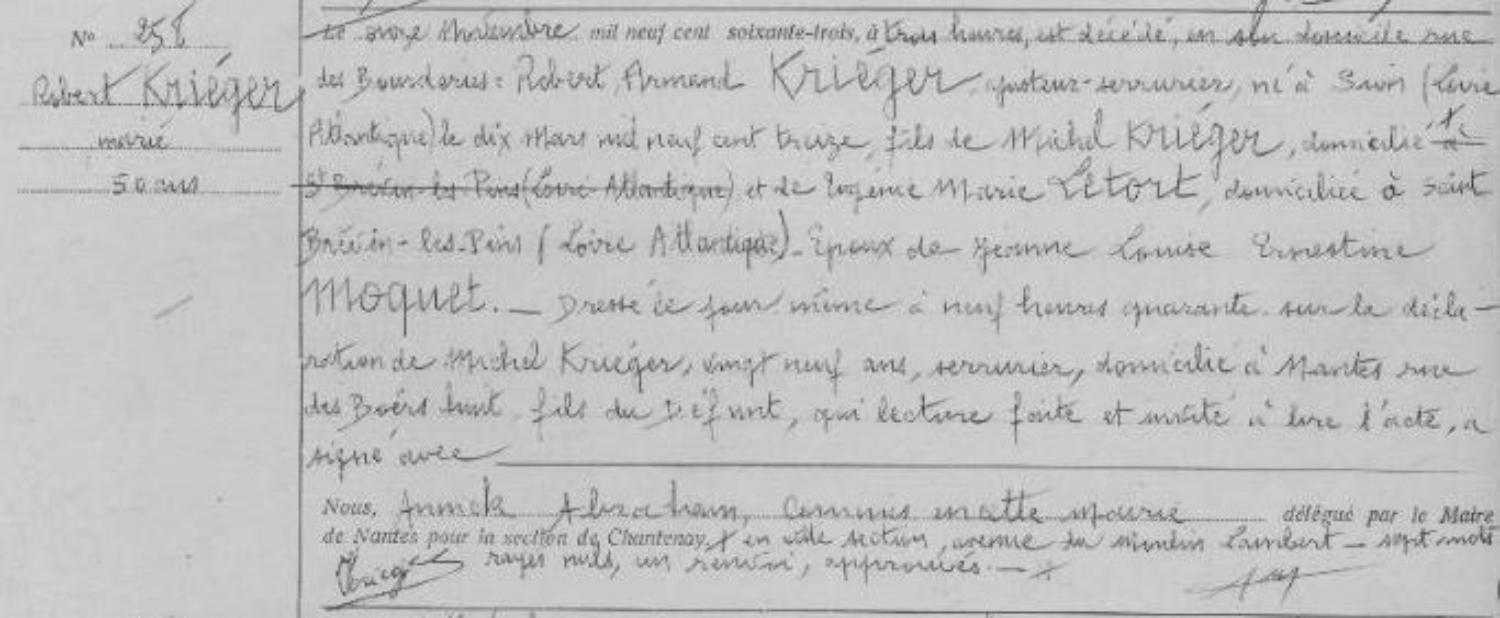 N° 258
Robert Kriéger
marié
50 ans
Le onze Novembre mil neuf cent soixante-trois, à trois heures, est décédé, en son domicile rue
des Bourderies : Robert Armand KRIÉGER, ajusteur-serrurier, né à (Loire
Atlantique) le dix Mars mil neuf cent treize, fils de Michel KRIÉGER, domicilié + à
St Brévin-les-Pins (Loire-Atlantique) et de Eugénie Marie LETORT, domiciliée à Saint
Brévin-les-Pins (Loire Atlantique). Epoux de Jeanne Louise Ernestine
MOQUET. — Dressé le jour même à neuf heures quarante sur la décla-
ration de Michel Kriéger, vingt neuf ans, serrurier, domicilié à Nantes rue
des Boërs huit, fils du Défunt, qui lecture faite et invité à lire l'acte, a
signé avec
Nous, Annick Abraham, Commis en cette Mairie délégué par le Maire
de Nantes pour la section de Chantenay, + en cette section, avenue du Moulin Lambert — sept mots
rayés nuls, un renvoi, approuvés. — +
Kriéger